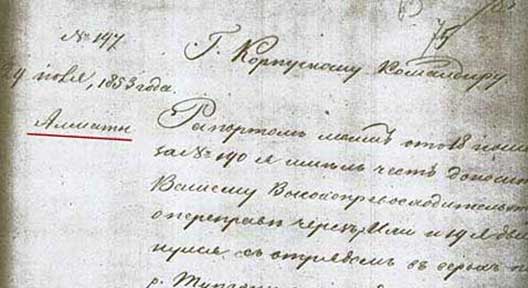 № 147
Г. Корпусному Командиру.
24 июля, 1853 года.
Алматы
Рапортомъ моимъ отъ 18 июля
за № 140 я имѣлъ честь донест
Вашему Высокопревосходительств
о переправѣ черезъ Или и 19 я дви
нулся съ отрядомъ въ верхъ п
р.